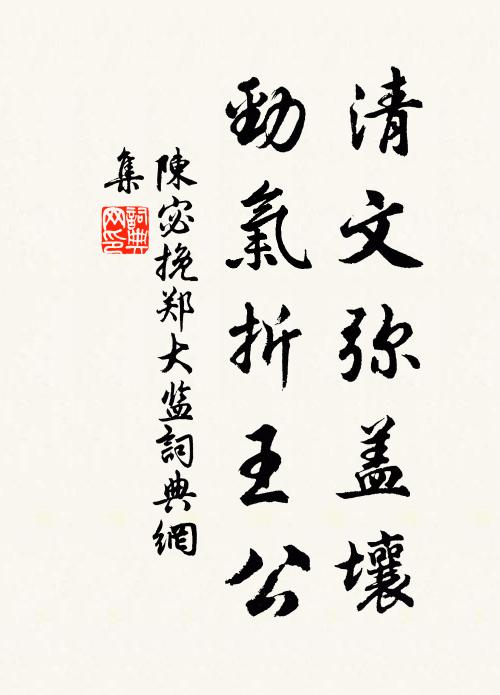 清文弥盖壤
勁氣折王公
陳宓挽郑大监詞典網
集
詞典
网印